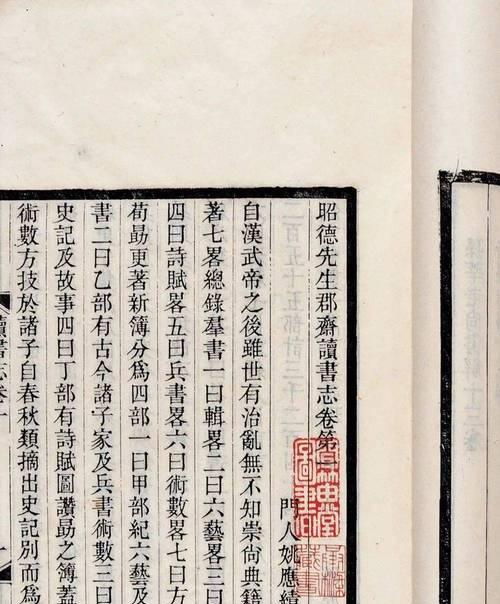 昭德先生郡齋讀書志卷第一
門人姚應績
自漢武帝之後雖世有治亂無不知崇尚典籍
著七畧總錄羣書一曰輯畧二曰六藝畧三曰
四曰詩賦畧五曰兵書畧六曰術數畧七曰方
荀勗更著新簿分爲四部一曰甲部紀六藝及
書二曰乙部有古今諸子家及兵書術數三曰
史記及故事四曰丁部有詩賦圖讚勗之簿蓋
術數方技於諸子自春秋類摘出史記別而爲
讀書志卷一